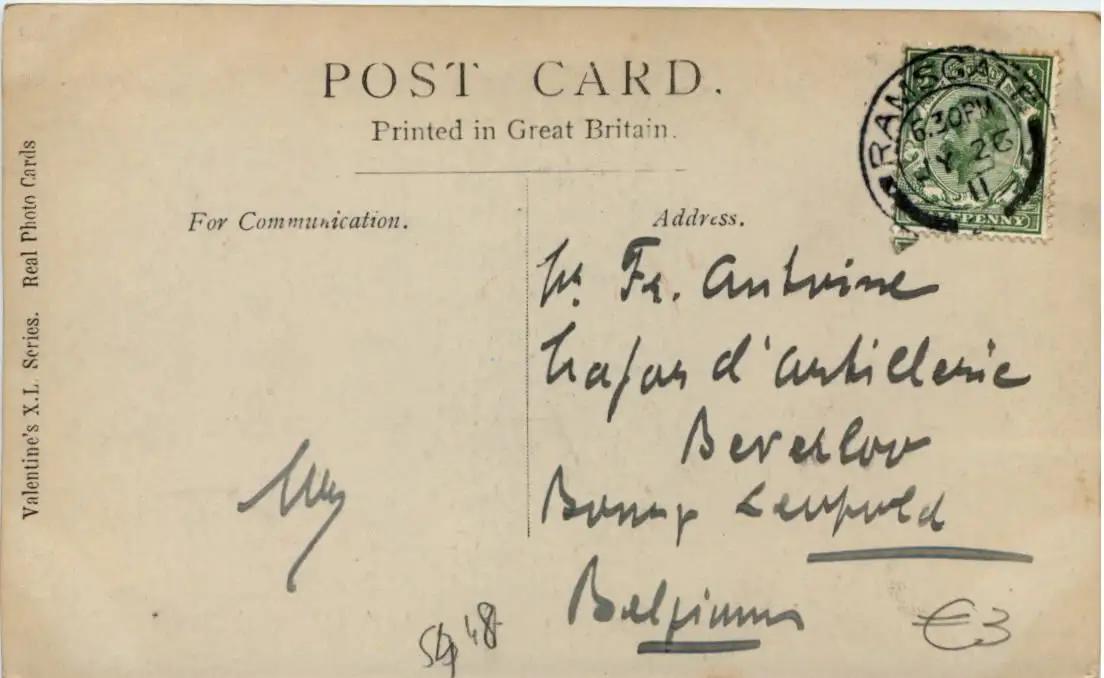 POST CARD.
Printed in Great Britain.
For Communication.
Address.
Valentine's X.L. Series. Real Photo Cards
RAMSGATE
6.30PM
JY 26
11
PENNY
Fr. Antoine
d'artillerie
Beverloo
Bourg Leopold
Belgium
48
€3